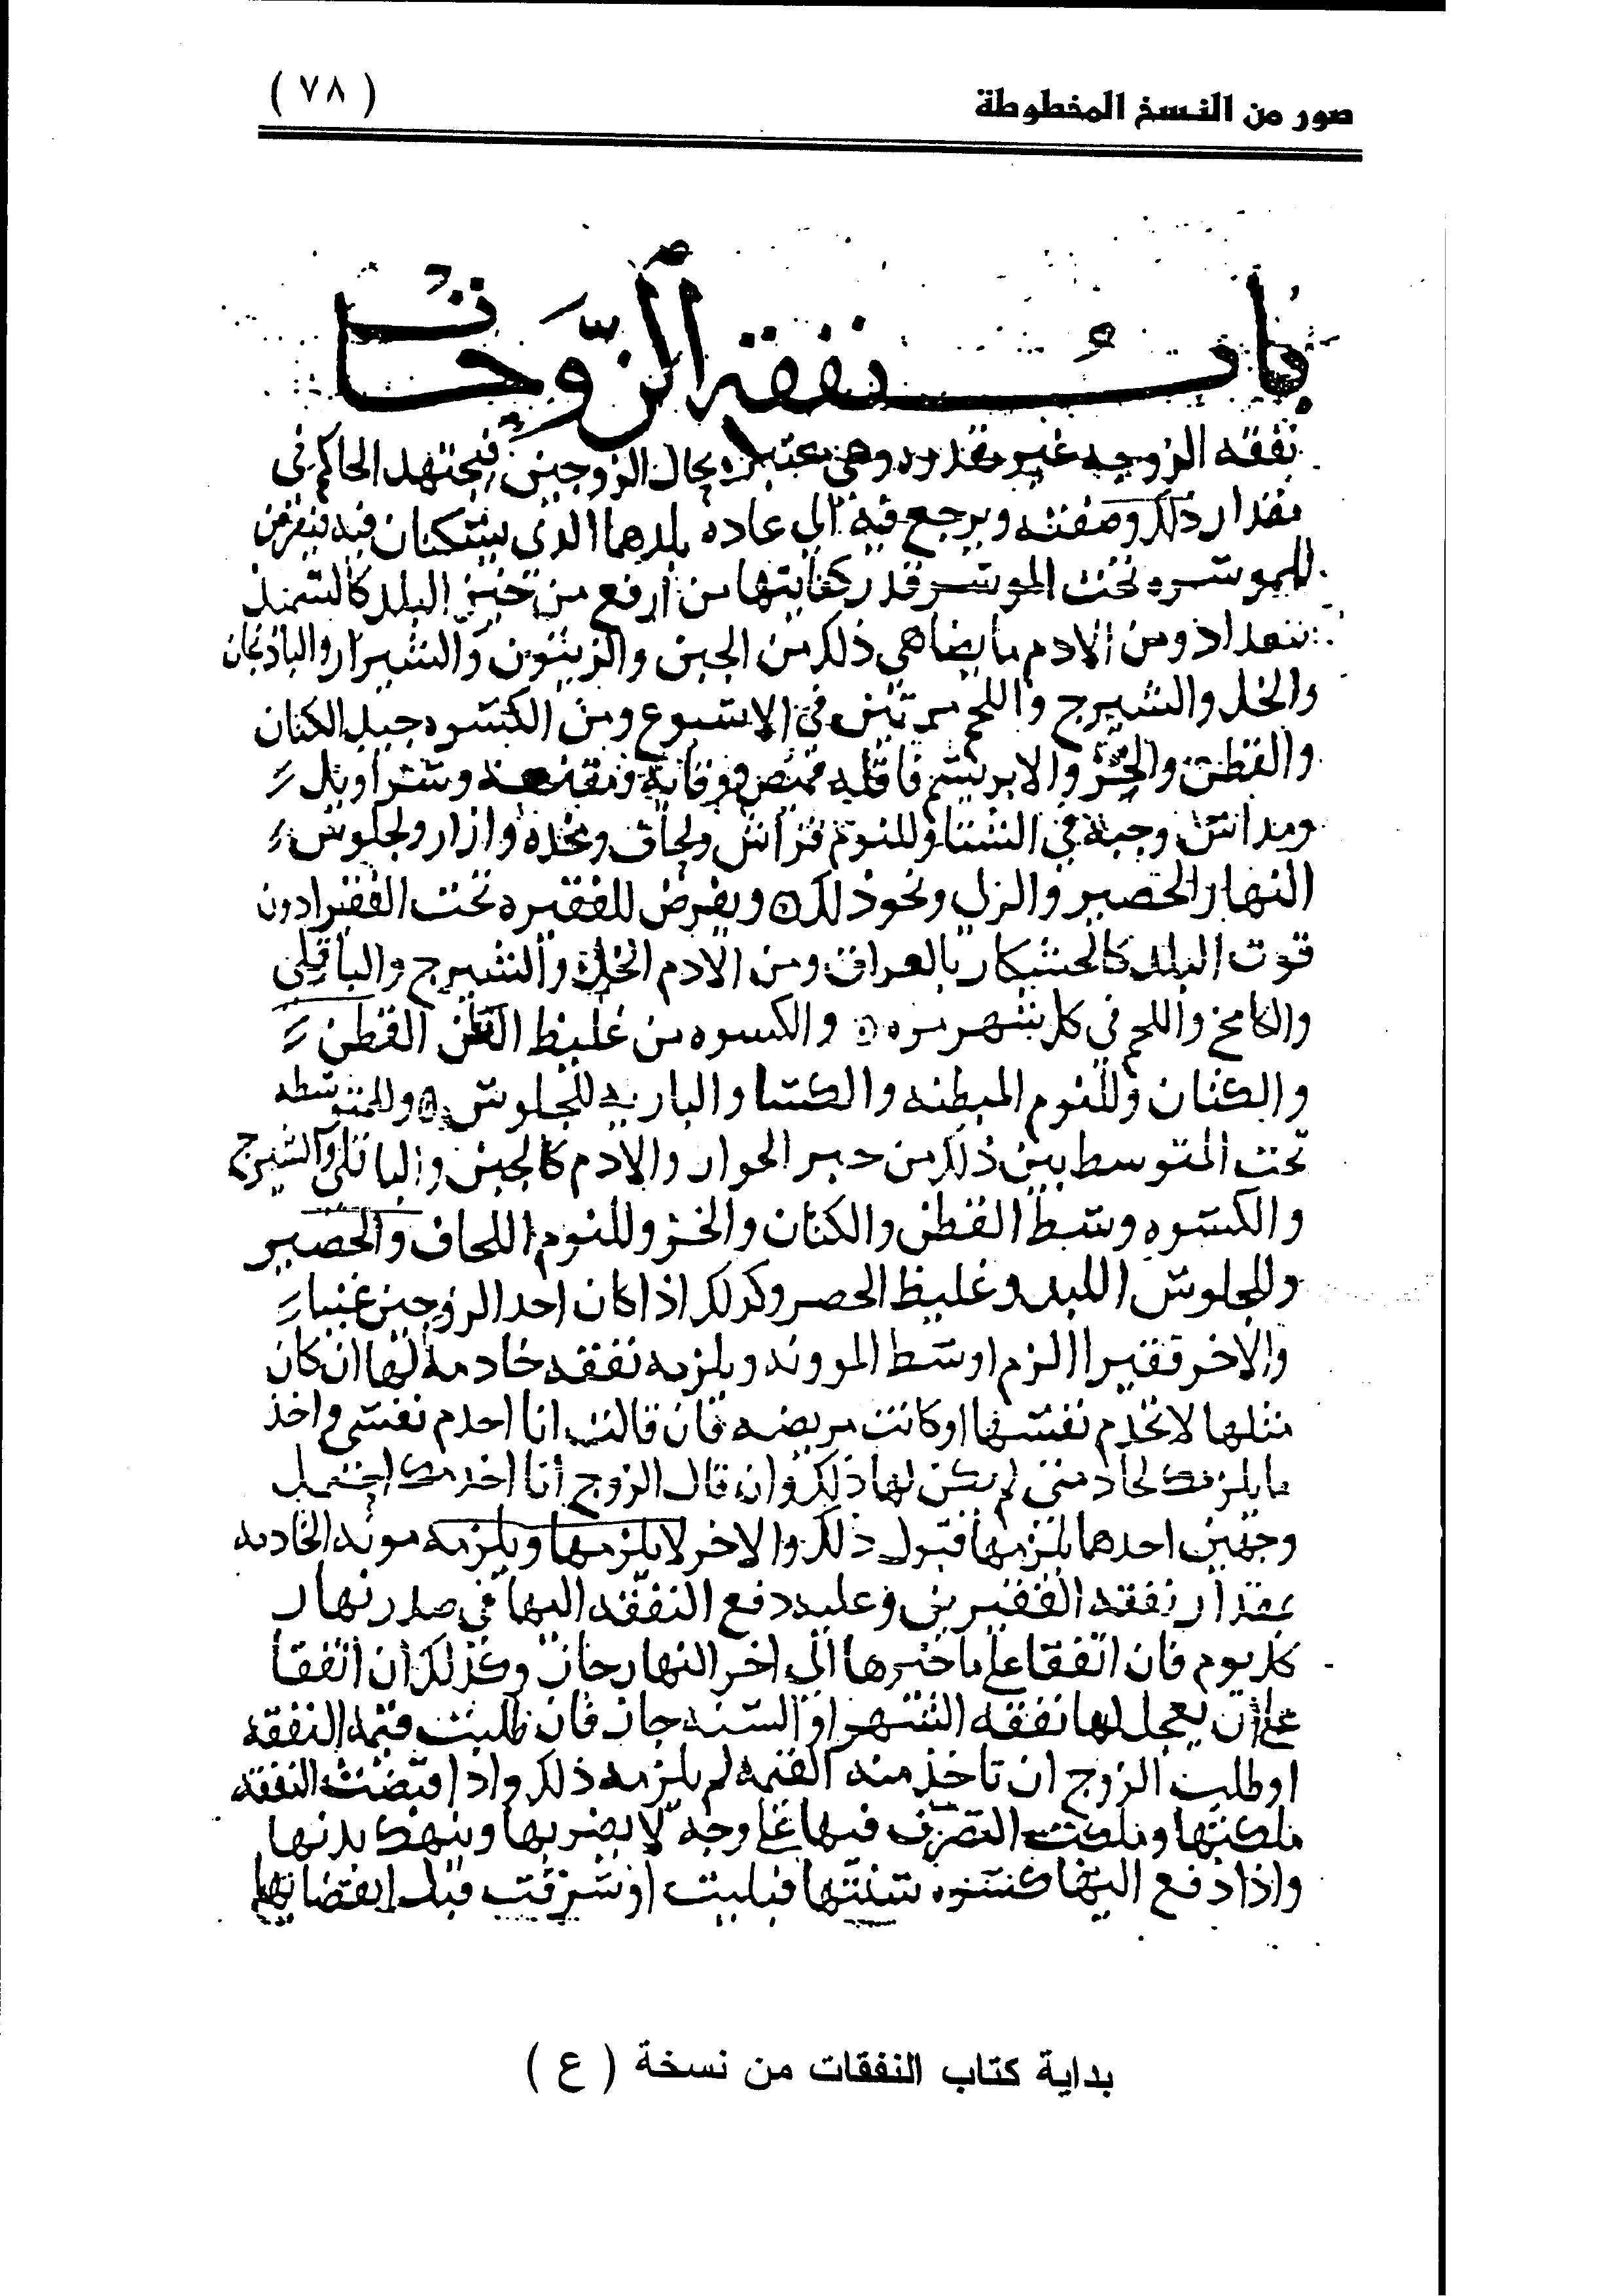 صور من النسخ المخطوطة
( ٧٨ )
باب نفقه الزوجات
نفقه الزوجه غير مقدره وهي معتبره بحال الزوجين فيجتهد الحاكم في
مقدار ذلك وصفته ويرجع فيه الى عاده بلدهما الذي يسكنان فيه فيفرض
للموسره تحت الموسر قدر كفايتها من ارفع من خبز البلد كالسميذ
ببغداد ومن الادم ما يضاهي ذلك من الجبن والزيتون والشيراز والباذنجان
والخل والشيرج واللحم مرتين في الاسبوع ومن الكسوه جيد الكتان
والقطن والخز والابريسم فاقله قميص ووقايه ومقنعه وسراويل
ومداس وجبة في الشتا وللنوم فراش ولحاف ومخده وازار ولجلوس
النهار الحصير والزلي ونحو ذلك ويفرض للفقيره تحت الفقير ادون
قوت البلد كالخشكار بالعراق ومن الادم الخل والشيرج والباقلى
والكامخ واللحم في كل شهر مره والكسوه من غليظ القطن القطن
والكتان وللنوم المبطنه والكسا والباريه للجلوس وللمتوسطه
تحت المتوسط بين ذلك من خبز الحوار والادم كالجبن والباقلى والشيرج
والكسوه وسط القطن والكتان والخز وللنوم اللحاف والحصير
وللجلوس اللبد وغليظ الحصر وكذلك اذا كان احد الزوجين غنيا
والاخر فقيرا الزم اوسط الموونه ويلزمه نفقه خادمة لها ان كان
مثلها لا تخدم نفسها او كانت مريضه فان قالت انا اخدم نفسي واخذ
ما يلزمك لخادمتي لم يكن لها ذلك وان قال الزوج انا اخدمك احتمل
وجهين احدهما يلزمها قبول ذلك والاخر لا يلزمها ويلزمه مونه الخادمه
بمقدار نفقه الفقيرين وعليه دفع النفقه اليها في صدر نهار
كل يوم فان اتفقا على تاخيرها الى اخر النهار جاز وكذلك ان اتفقا
على ان يعجل لها نفقه الشهر او السنه جاز فان طلبت قيمه النفقه
او طلب الزوج ان تاخذ منه القيمه لم يلزمه ذلك واذا قبضت النفقه
ملكتها وملكت التصرف فيها على وجه لا يضر بها وينهك بدنها
واذا دفع اليها كسوه سنتها فبليت او سرقت قبل انقضائها
بداية كتاب النفقات من نسخة ( ع )